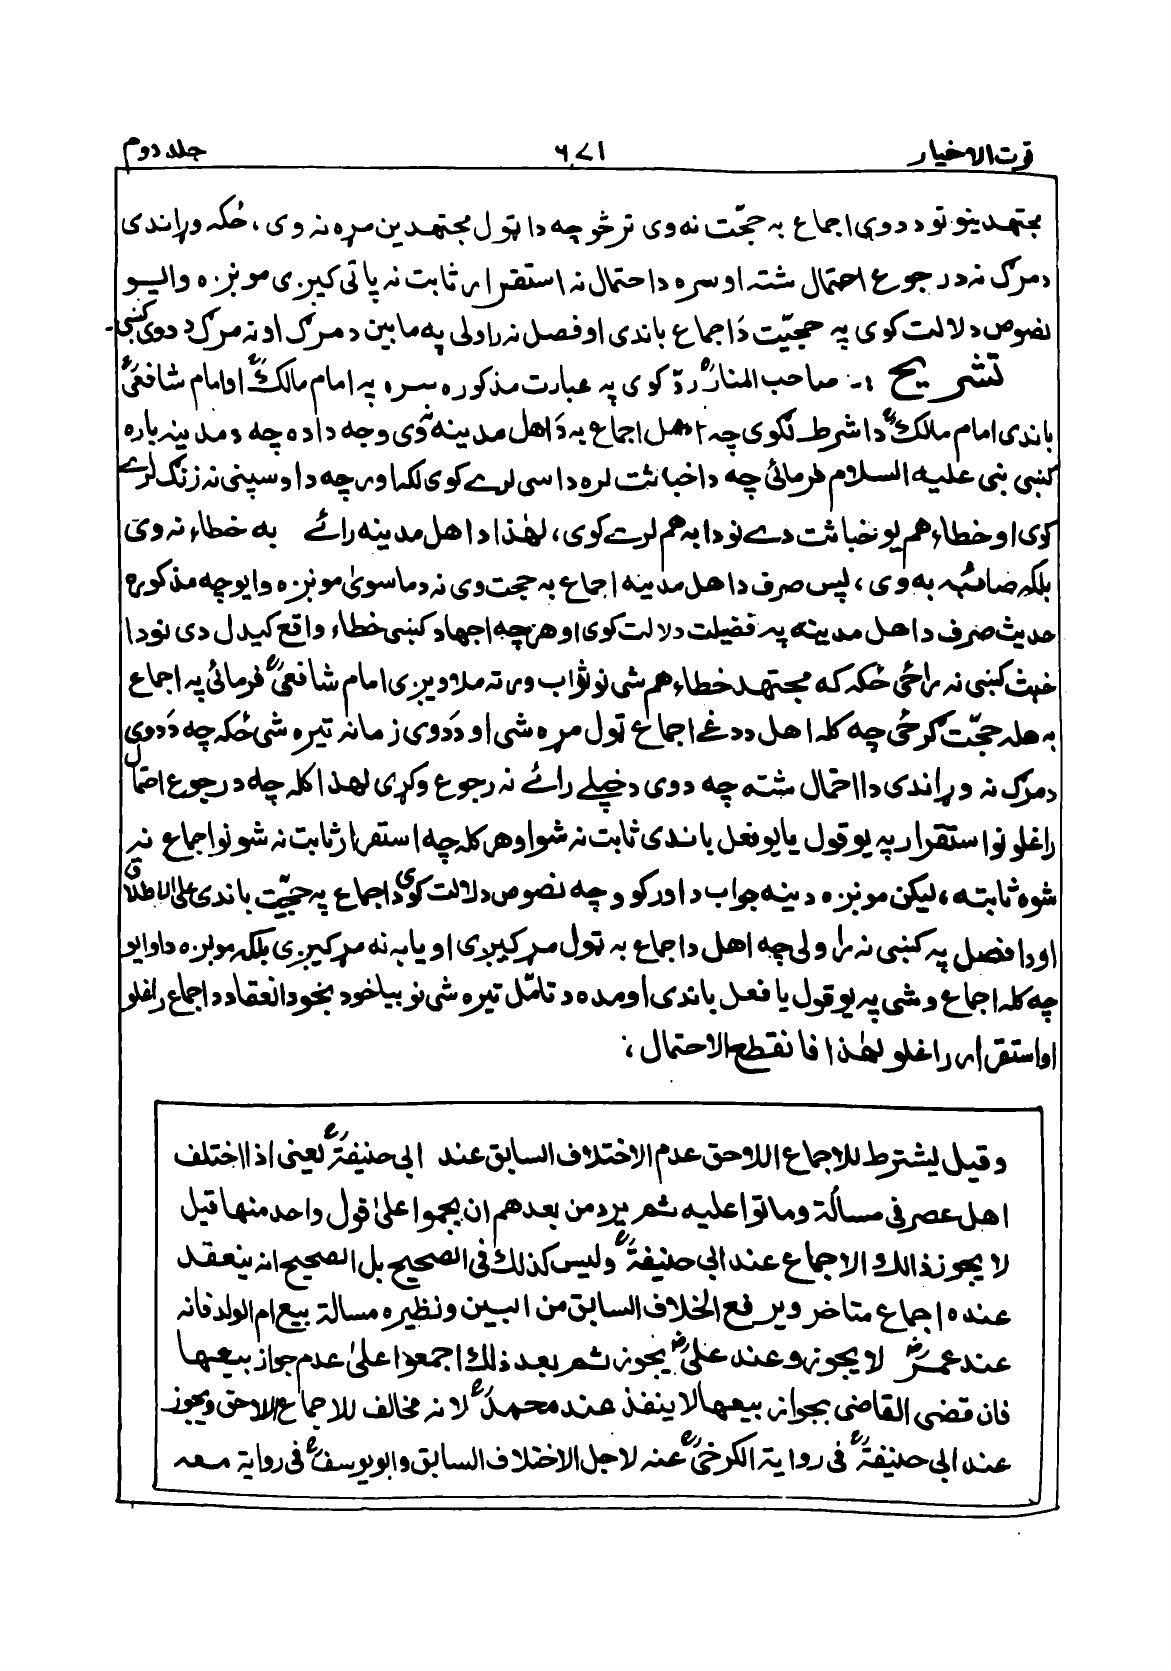 قرت الاخیار ۶۷۱ جلد دوم
مجتهدینو نو د دوی اجماع به حجّت نه وی ترڅو چه دا ټول مجتهدین مړه نه وی، ځکه وړاندی
د مرګ نه د رجوع احتمال شته او سره د احتمال نه استقرار ثابت نه پاتی کیږی مونږه وایو
نصوص دلالت کوی په حجیّت دَ اجماع باندی او فصل نه راولی په مابین د مرګ او نه مرګ د دوی کښی۔
تشریح :۔ صاحب المنارؒ ردّ کوی په عبارت مذکوره سره په امام مالکؒ او امام شافعیؒ
باندی امام مالکؒ دا شرط لګوی چه اهل اجماع به دَ اهل مدینه نه وی وجه داده چه د مدینه باره
کښی نبی علیه السلام فرمائی چه دا خباثت لره داسی لرے کوی لکه اور چه د اوسپنی نه زنګ لرے
کوی او خطاء هم یو خباثت دے نو دا به هم لرے کوی، لهٰذا د اهل مدینه رائے به خطاء نه وی
بلکه صائبه به وی، پس صرف د اهل مدینه اجماع به حجت وی نه د ماسویٰ مونږه وایو چه مذکوره
حدیث صرف د اهل مدینه په فضیلت دلالت کوی او هر چه اجهاد کښی خطاء واقع کیدل دی نو دا
خبث کښی نه راځی ځکه که مجتهد خطاء هم شی نو ثواب ورته ملاویږی امام شافعیؒ فرمائی په اجماع
به هله حجّت ګرځی چه کله اهل د دغے اجماع ټول مړه شی او دَ دوی زمانه تیره شی ځکه چه دَ دوی
د مرګ نه وړاندی دا احتمال شته چه دوی د خپلے رائے نه رجوع وکړی لهذا کله چه د رجوع احتمال
راغلو نو استقرار په یو قول یا یو فعل باندی ثابت نه شو او هر کله چه استقرار ثابت نه شو نو اجماع نه
شوه ثابته، لیکن مونږه د ینه جواب داورکوو چه نصوص دلالت کوی د اجماع په حجیّت باندی علی الاطلاق
او دا فصل په کښی نه راولی چه اهل د اجماع به ټول مړ کیږی او یا به نه مړ کیږی بلکه مونږه دا وایو
چه کله اجماع وشی په یو قول یا فعل باندی او مده د تامّل تیره شی نو بیا خود بخود انعقاد د اجماع راغلو
او استقرار راغلو لهٰذا فانقطع الاحتمال،
وقیل یشترط للاجماع اللاحق عدم الاختلاف السابق عند ابی حنیفةؒ یعنی اذا اختلف
اهل عصر فی مسألة وماتوا علیه ثم یرد من بعدهم ان یجموا علیٰ قول واحد منها قیل
لا یجوز ذالك الاجماع عند ابی حنیفةؒ ولیس کذلك فی الصحیح بل الصحیح انه ینعقد
عنده اجماع متاخر ویرفع الخلاف السابق من البین ونظیره مسالة بیع ام الولد فانه
عند عمرؓ لا یجوز وعند علیؓ یجوز ثم بعد ذلك اجمعوا علیٰ عدم جواز بیعها
فان قضی القاضی بجواز بیعها لا ینفذ عند محمدؒ لانه مخالف للاجماع اللاحق ویجوز
عند ابی حنیفةؒ فی روایة الکرخیؒ عنه لاجل الاختلاف السابق وابو یوسفؒ فی روایة معه